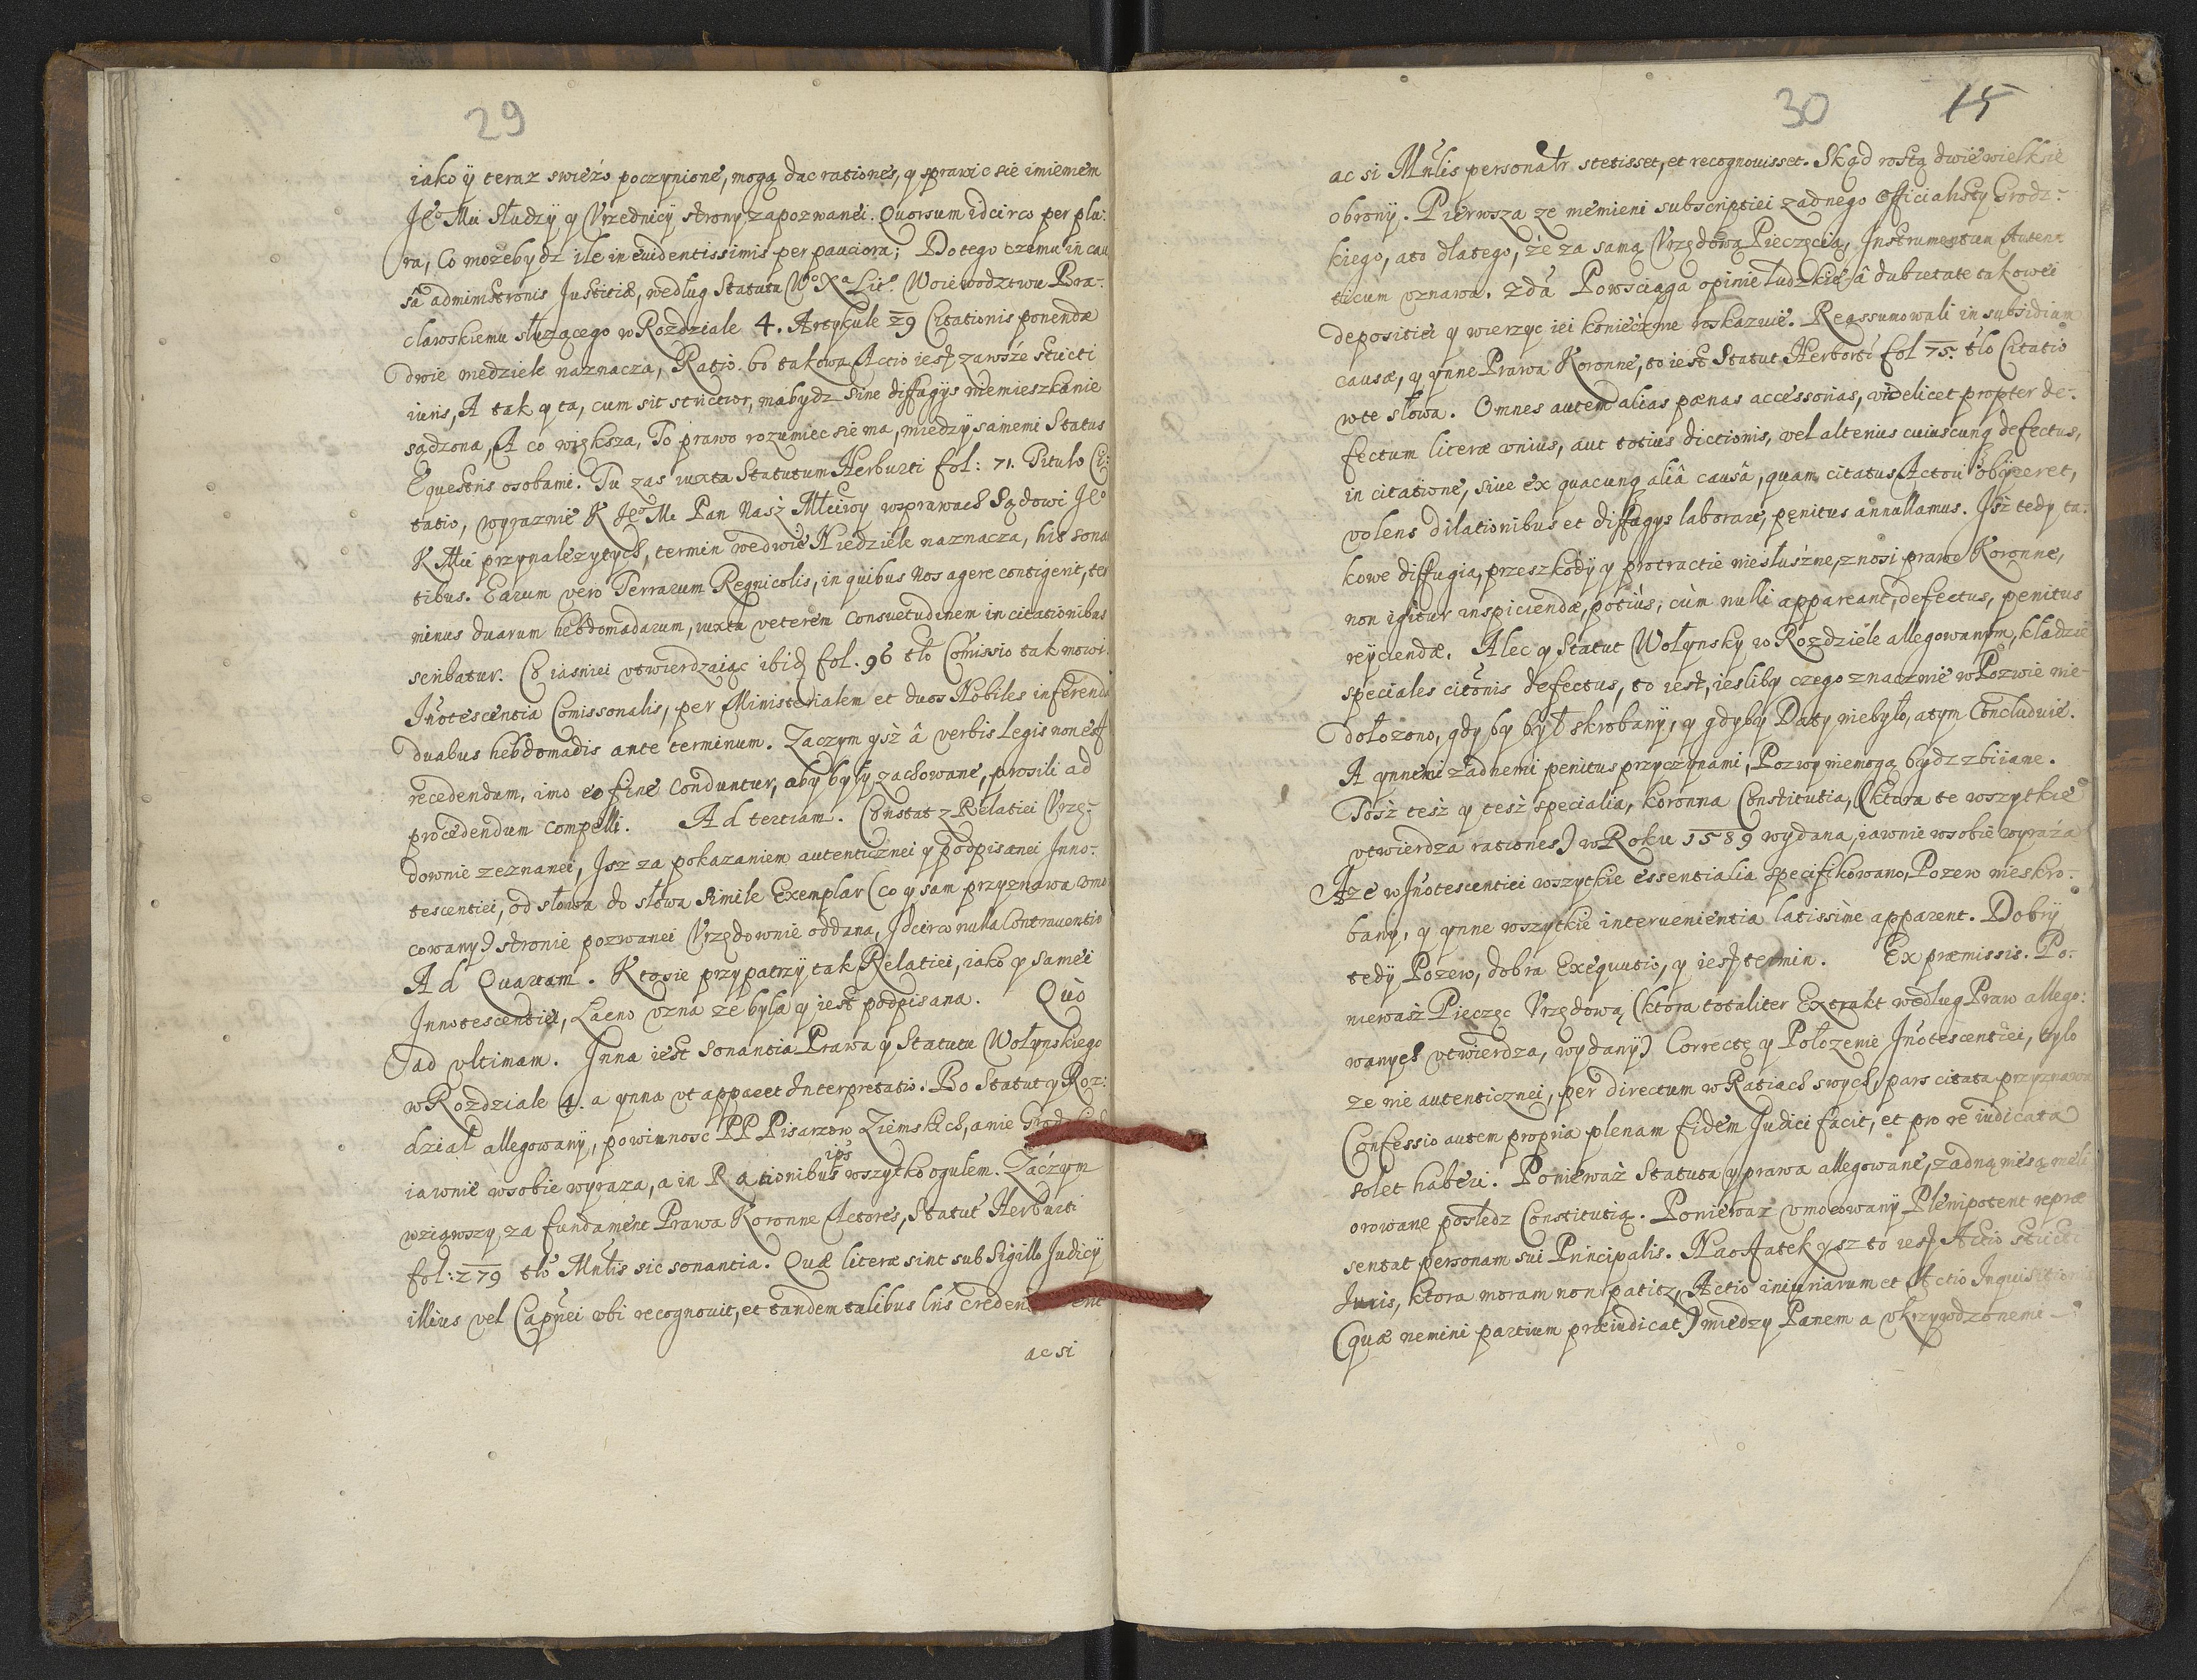 29
iako ÿ teraz swieżo poczynione, mogą dac rationes, y sprawic sie imieniem
Je° Mći Słudzÿ y Vrzednicÿ strony zapozwanéi. Quorsum idcirco per plu:
ra, Co możebydz ile in euidentissimis per pauciora; Dotego czemu in cau
sâ administronis Justitiæ, według Statutu W° Xa Lit°. Woiewodztwu Bra:
clawskiemu służącego w Rozdziale 4. Artykule 29 Citationis ponendæ
dwie niedziele naznacza, Ratio. bo takowa Actio iest zawsże stricti
iuris, A tak y ta, cum sit strictior, mabydz sine diffugÿs niemieszkanie
sądzona, A co większa, To prawo rozumiec sie ma, miedzÿ samemi Status
Equestris osobami. Tu zas iuxta Statutum Herburti fol: 71. Titulo Ci:
tatio, wyraznie K Je° M. Pan Nasż Młćiwy wsprawach Sądowi Je°
K Mći przynależytych, termin wedwie Niedziele naznacza, his sona
tibus. Earum vero Terrarum Regnicolis, in quibus Nos agere contigerit, ter
minus duarum hebdomadarum, iuxta veterem Consuetudinem in citationibus
scribatur. Co iasniei vtwierdzaiąc ibid fol. 96 tło Comissio tak mowi.
Jnotescentia Comissonalis, per Ministerialem et duos Nobiles inferenda
duabus hebdomadis ante terminum. Zaczym ysż â verbis legis non est
recedendum, imo eo fine Conduntur, aby były zachowane, prosili ad
procedendum compelli. Ad tertiam. Constat z Relatiei Vrzę:
downie zeznanei, Jsz za pokazaniem autenticznei y podpisanei Jnno:
tescentiei, od słowa do słowa Simile Exemplar (co y sam przyznawa vmo
cowany) stronie pozwanei Vrzędownie oddana, Jdcirco nulla Contrauentio
Ad Quartam. Ktosie przypatrzÿ tak Relatiei, iako y Samei
Jnnotescentiei, Łacno vzna że była y iest podpisana. Quò
ad vltimam. Jnna iest sonantia Prawa y Statutu Wołynskiego
w Rozdziale 4. a ynna vt apparet Interpretatio. Bo Statut y Roz:
dział allegowanÿ, powinnosc PP Pisarzow Ziemskich, a nie Grod
iawnie wsobie wyraza, a in Rationibus ips wszytko ogułem. Zaczym
wziąwszy za fundament Prawa Koronne Actores, Statut Herburti
fol: 279 tło Mnlis sic sonantia. Quæ literæ sint sub Sigillo Judicÿ
illius vel Capnei vbi recognouit, et tandem talibus lris creden
ac si
30 15
ac si Mnlis personalr. stetisset, et recognouisset. Skąd rostą dwie wielkie
obronÿ. Pierwsza że niemieni subscriptiei zadnego Officialisty Grodz:
kiego, ato dlatego, że za samą Vrzędową Pieczęcią, Jnstrumentum Auten:
ticum vznawa. 2dá Powsciąga opinie ludzkie â dubietate takowei
depositiei y wierzyc iei koniecznie roskazuie. Reassumowali in subsidium
causæ, y ynne Prawa Koronne, to iest Statut Herborti fol 75. tło Citatio
wte słowa. Omnes autem alias pœnas accessorias, videlicet propter de:
fectum literæ vnius, aut totius dictionis, vel alterius cuiuscunq defectus,
in citatione, siue ex quacunq aliâ causâ, quam citatus Actori obÿceret,
volens dilationibus et diffugÿs laborare, penitus annullamus. Jsż tedy ta:
kowe diffugia, przeszkodÿ y protractie niesłuszne, znosi prawo Koronne,
non igitur inspiciendæ, potiùs, cùm nulli appareant, defectus, penitus
reÿciendæ. Alec y Statut Wołynsky w Rozdziele allegowanym, kładzie
speciales citõnis defectus, to iest, iesliby czego znacznie w Pozwie nie
dołożono, gdyby był skrobanÿ, y gdyby Daty niebyło, atym Concluduie.
A ynnemi żadnemi penitus przyczynami, Pozwy niemogą bydz zbiiane.
Tosż tesż y tesż specialia, koronna Constitutia, (ktora te wszytkie
vtwierdza rationes) w Roku 1589 wydana, iawnie wsobie wyraża
Aze w Jnotescentiei wszytkie essentialia specifikowano, Pozew nieskro:
banÿ, y ynne wszytkie interuenientia latissime apparent. Dobrÿ
tedÿ Pozew, dobra Exequutio, y iest termin. Ex præmissis. Po:
niewasz Pieczęc Vrzędową (ktora totaliter Extrakt według Praw allego:
wanych vtwierdza, wydanÿ) Correctę y Położenie Jnotescentiei, tylo
ze nie autenticznei, per directum w Ratiach swych, pars citata przyznawa
Confessio autem propria plenam fidem Judici facit, et pro re iudicata
solet haberi. Ponieważ Statuta y prawa allegowane, żadną niesą meli
orowane posledz Constitutią. Poniewaz vmocowanÿ Plenipotent repræ
sentat personam sui Principalis. Na ostatek ysz to iest Actio stricti
Iuris, ktora moram non patitr, Actio iniuriarum et Actio Inquisitionis
(quæ nemini partium præiudicat) miedzy Panem a vkrzywdzonemi